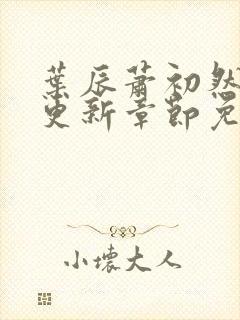 葉辰蕭初然
更新章節免
小壞大人